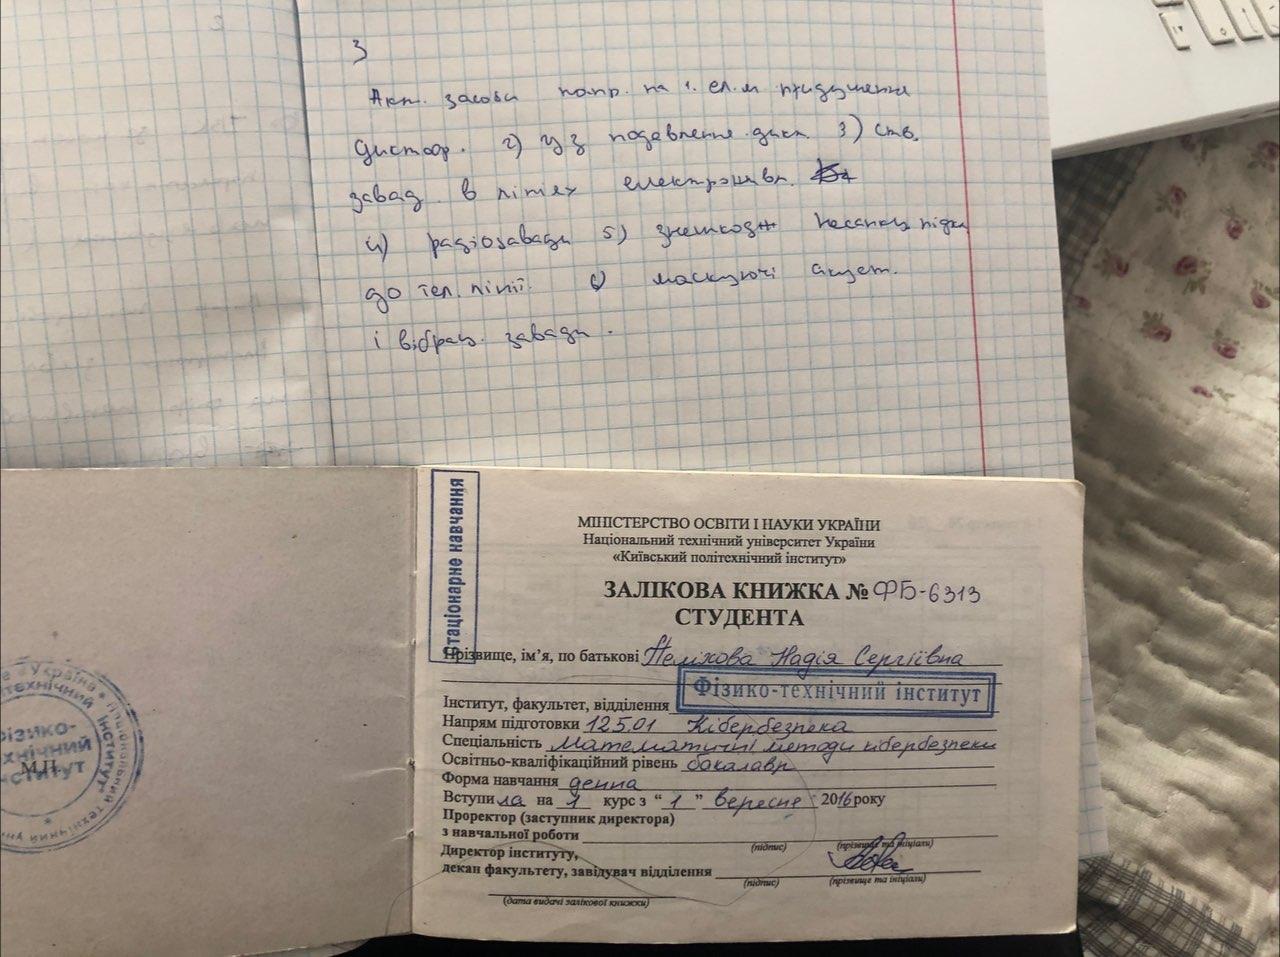 3
Акт. засоби напр. на 1. ел.м придушення
диктоф. 2) УЗ подавлення дикт. 3) ств.
завад в лініях електроживл.
4) радіозавади 5) знешкодж несанкц підкл
до тел. лінії. 6) маскуючі акуст.
і вібрац. завади.
Стаціонарне навчання
МІНІСТЕРСТВО ОСВІТИ І НАУКИ УКРАЇНИ
Національний технічний університет України
«Київський політехнічний інститут»
ЗАЛІКОВА КНИЖКА № ФБ-6313
СТУДЕНТА
Прізвище, ім’я, по батькові Надія Сергіївна
Інститут, факультет, відділення Фізико-технічний інститут
Напрям підготовки 125.01 Кібербезпека
Спеціальність Математичні методи кібербезпеки
Освітньо-кваліфікаційний рівень бакалавр
Форма навчання денна
Вступила на 1 курс з “1” вересня 2016 року
Проректор (заступник директора)
з навчальної роботи
(підпис) (прізвище та ініціали)
Директор інституту,
декан факультету, завідувач відділення
(підпис) (прізвище та ініціали)
(дата видачі залікової книжки)
М.П.